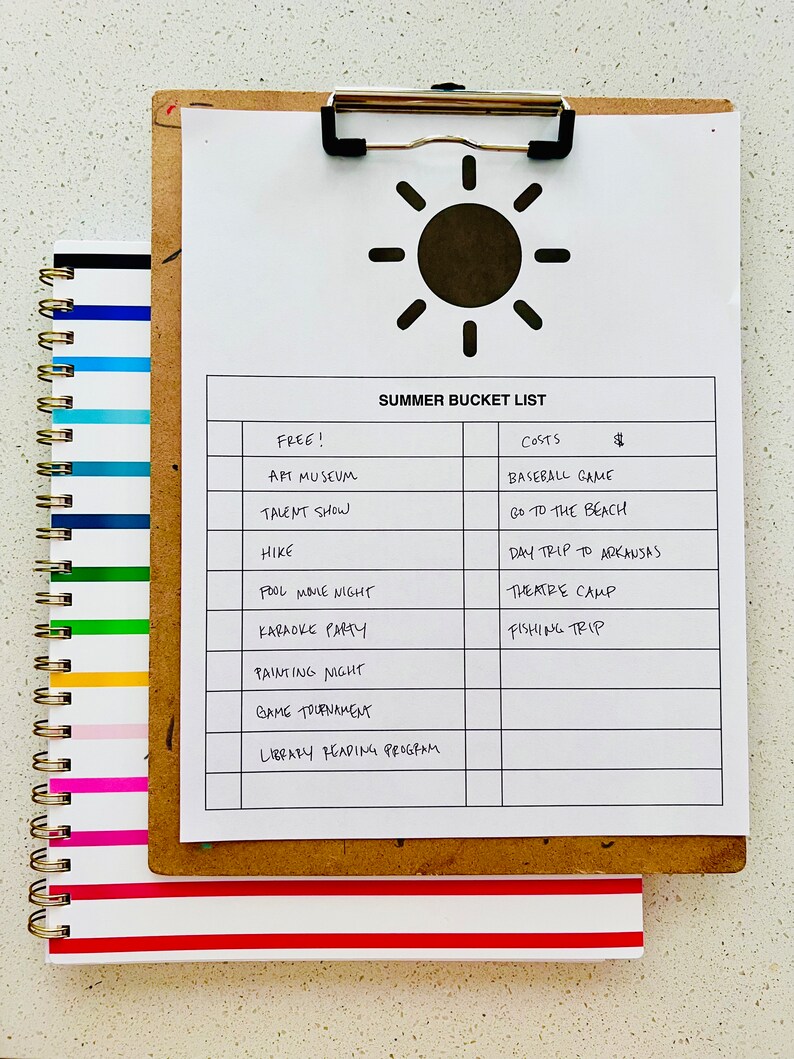 SUMMER BUCKET LIST
FREE! COSTS $
ART MUSEUM BASEBALL GAME
TALENT SHOW GO TO THE BEACH
HIKE DAY TRIP TO ARKANSAS
POOL MOVIE NIGHT THEATRE CAMP
KARAOKE PARTY FISHING TRIP
PAINTING NIGHT
GAME TOURNAMENT
LIBRARY READING PROGRAM